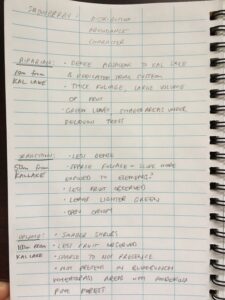 SNOWBERRY: DISTRIBUTION
ABUNDANCE
CHARACTER
RIPARIAN: - DENSE ADJACENT TO KAL LAKE
10m from & DEDICATED TRAIL SYSTEM
KAL LAKE - THICK FOLIAGE, LARGE VOLUME
OF FRUIT
- GREEN LEAFY SHADED AREAS UNDER
DECIDUOUS TREES
TRANSITION: - LESS DENSE
50m from - SPARSE FOLIAGE - SLOPE MORE
KAL LAKE EXPOSED TO ELEMENTS?
- LESS FRUIT OBSERVED
- LEAVES LIGHTER GREEN
- OPEN CANOPY
UPLAND: - SMALLER SHRUBS
100m from - LESS FRUIT OBSERVED
KAL LAKE - SPARSE TO NOT PRESENCE
- NOT PRESENT IN
AREAS WITH PONDEROSA
PINE FORESTS